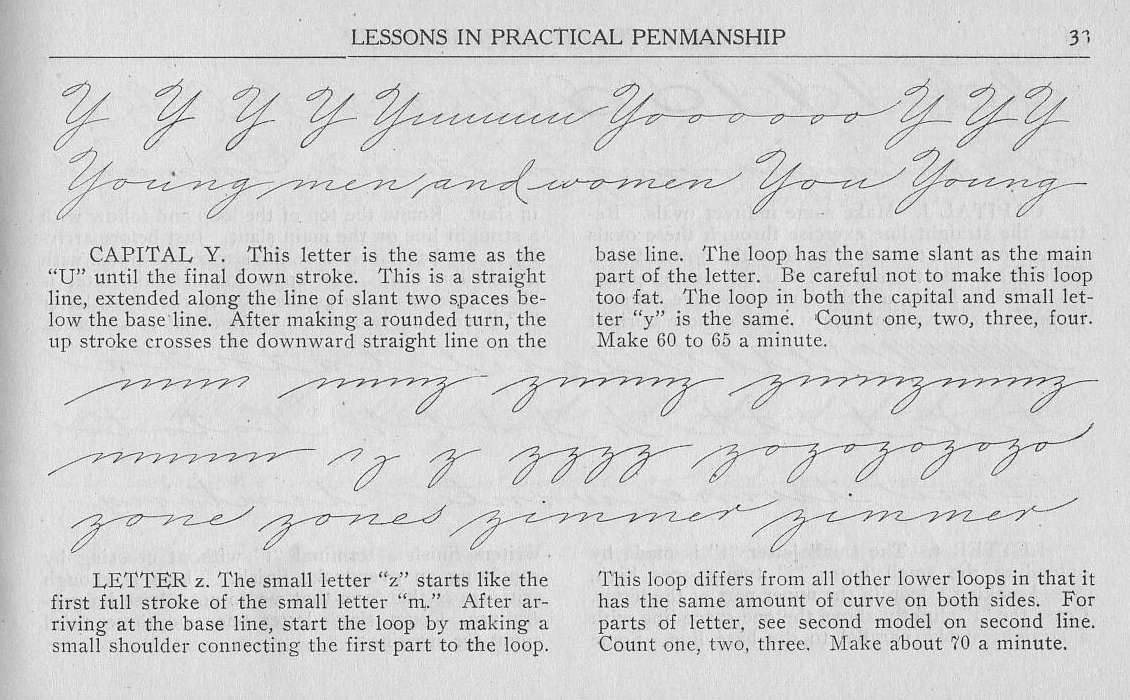 LESSONS IN PRACTICAL PENMANSHIP 33
Y Y Y Y Yuuuuuu Yooooooo Y Y Y
Young men and women You Young
CAPITAL Y. This letter is the same as the
"U" until the final down stroke. This is a straight
line, extended along the line of slant two spaces be-
low the base line. After making a rounded turn, the
up stroke crosses the downward straight line on the
base line. The loop has the same slant as the main
part of the letter. Be careful not to make this loop
too fat. The loop in both the capital and small let-
ter "y" is the same. Count one, two, three, four.
Make 60 to 65 a minute.
z z zzzz zozozozozo
zone zones zimmer zimmer
LETTER z. The small letter "z" starts like the
first full stroke of the small letter "m." After ar-
riving at the base line, start the loop by making a
small shoulder connecting the first part to the loop.
This loop differs from all other lower loops in that it
has the same amount of curve on both sides. For
parts of letter, see second model on second line.
Count one, two, three. Make about 70 a minute.